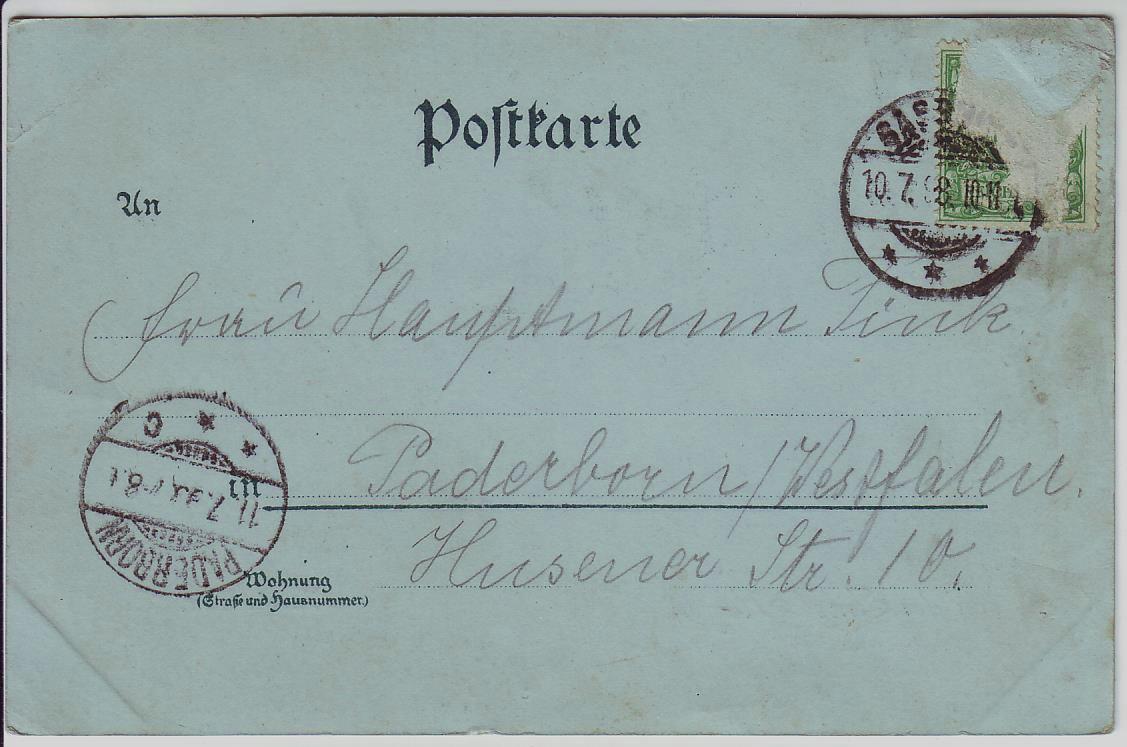 Postkarte
An
10. 7. 98. 10-11
Frau Hauptmann Fink.
C
11. 7.
in Paderborn / Westfalen.
PADERBORN
Husener Str. 10.
Wohnung
(Straße und Hausnummer.)